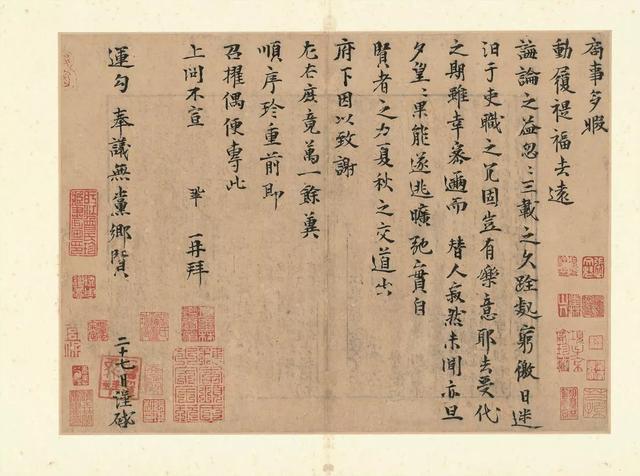 局事多暇
動履禔福去遠
誨論之益忽〻三載之久跧處窮徼日迷
汩于吏職之冗固豈有樂意耶去受代
之期雖幸密邇而 替人寂然未聞亦旦
夕望〻果能遂逃曠弛實自
賢者之力夏秋之交道出
府下因以致謝
左右庶竟萬一餘冀
順序珍重前即
召擢偶便專此
上問不宣 鞏 再拜
運勾 奉議無黨鄉賢
二十七日謹啟